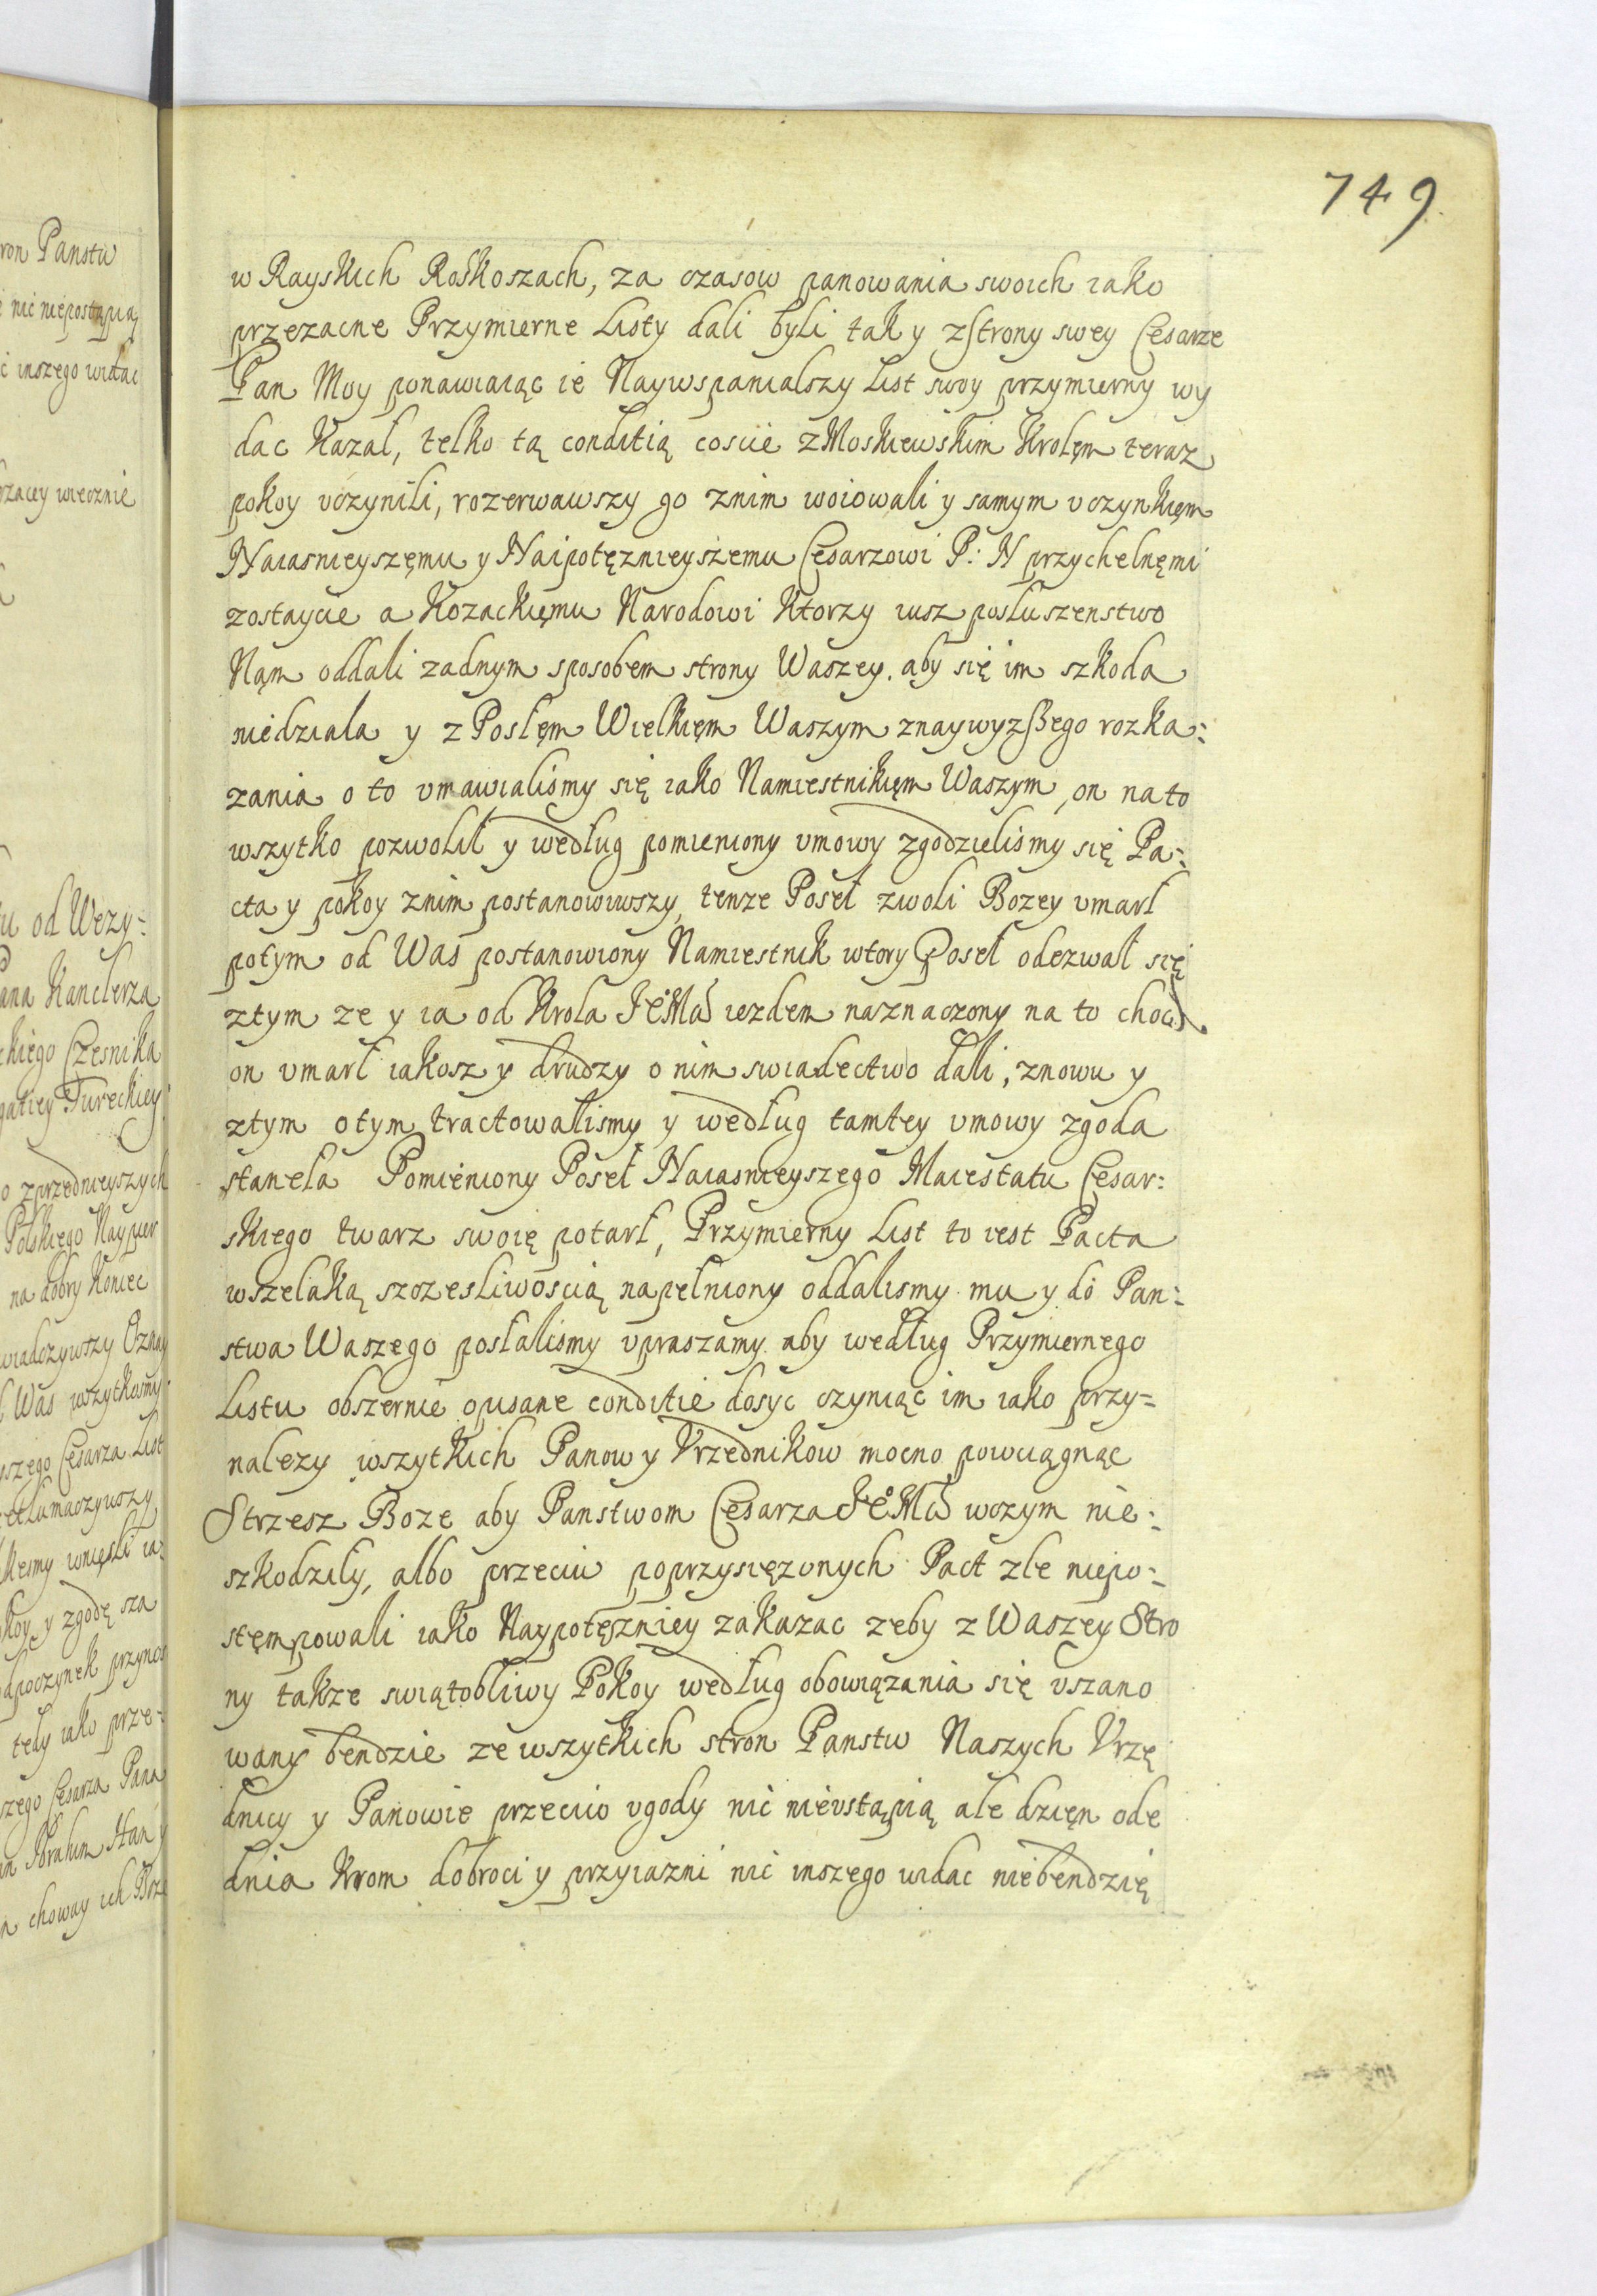 749
w Rayskich Roskoszach, za czasow panowania swoich iako
przezacne Przymierne Listy dali byli tak y z strony swey Cesarze
Pan Moy ponawiaiąc ie Naywspanialszy List swoy przymierny wy
dac Kazał, telko tą conditią coscie z Moskiewskim Krolęm teraz
pokoy vczynili, rozerwawszy go znim woiowali y samym vczynkięm
Naiasnieyszęmu y Naipotęznieyszemu Cęsarzowi P: N przychelnęmi
zostaycie a Kozackięmu Narodowi Ktorzy iusz posłuszenstwo
Nąm oddali zadnym sposobem strony Waszey. aby się im szkoda
niedziala y z Posłęm Wielkięm Waszym znaywyzszego rozka:
zania o to vmawialismy się iako Namiestnikięm Waszym, on na to
wszytko pozwolił y według pomieniony vmowy zgodzielismy się Pa:
cta y pokoy znim postanowiwszy, tenze Poseł zwoli Bozey vmarł
potym od Was postanowiony Namiestnik wtory Poseł odezwał się
ztym ze y ia od Krola JeMci iezdem naznaczony na to choc
on vmarł iakosz y drudzy o nim swiadectwo dali, znowu y
ztym otym tractowalismy y według tamtey vmowy zgoda
stanela Pomieniony Poseł Naiasnieyszego Maiestatu Cesar:
skiego twarz swoię potarł, Przymierny List to iest Pacta
wszelaką szczesliwoscią napełniony oddalismy mu y do Pan:
stwa Waszego posłalismy vpraszamy aby według Przymiernego
Listu obszernie opisane conditie dosyc czyniąc im iako przy=
nalezy wszytkich Panow y Vrzednikow mocno powciągnąc
Strzesz Boze aby Panstwom Cęsarza JeMci wczym nie:
szkodzily, albo przeciw poprzysięzonych Pact zle niepo:
stęmpowali iako Naypotęzniey zakazac zeby z Waszey Stro
ny takze swiątobliwy Pokoy według obowiązania się vszano
wany bendzie ze wszytkich stron Panstw Naszych Vrzę
dnicy y Panowie przeciw vgody nic nievstąpią ale dzięn ode
dnia Krom dobroci y przyiazni nic inszego widac niebendzię
ron Panstw
nic niepostąpią
inszego widac
wiecznie
od Wezy=
Kanclerza
Czesnika
Tureckiey
zprzednieyszych
Polskiego
na dobry Koniec
Was
Cesarza List
y zgodę
przynosi
tedy iako prze=
Cesarza Pana
Ibrahim Han y
choway ich Boze